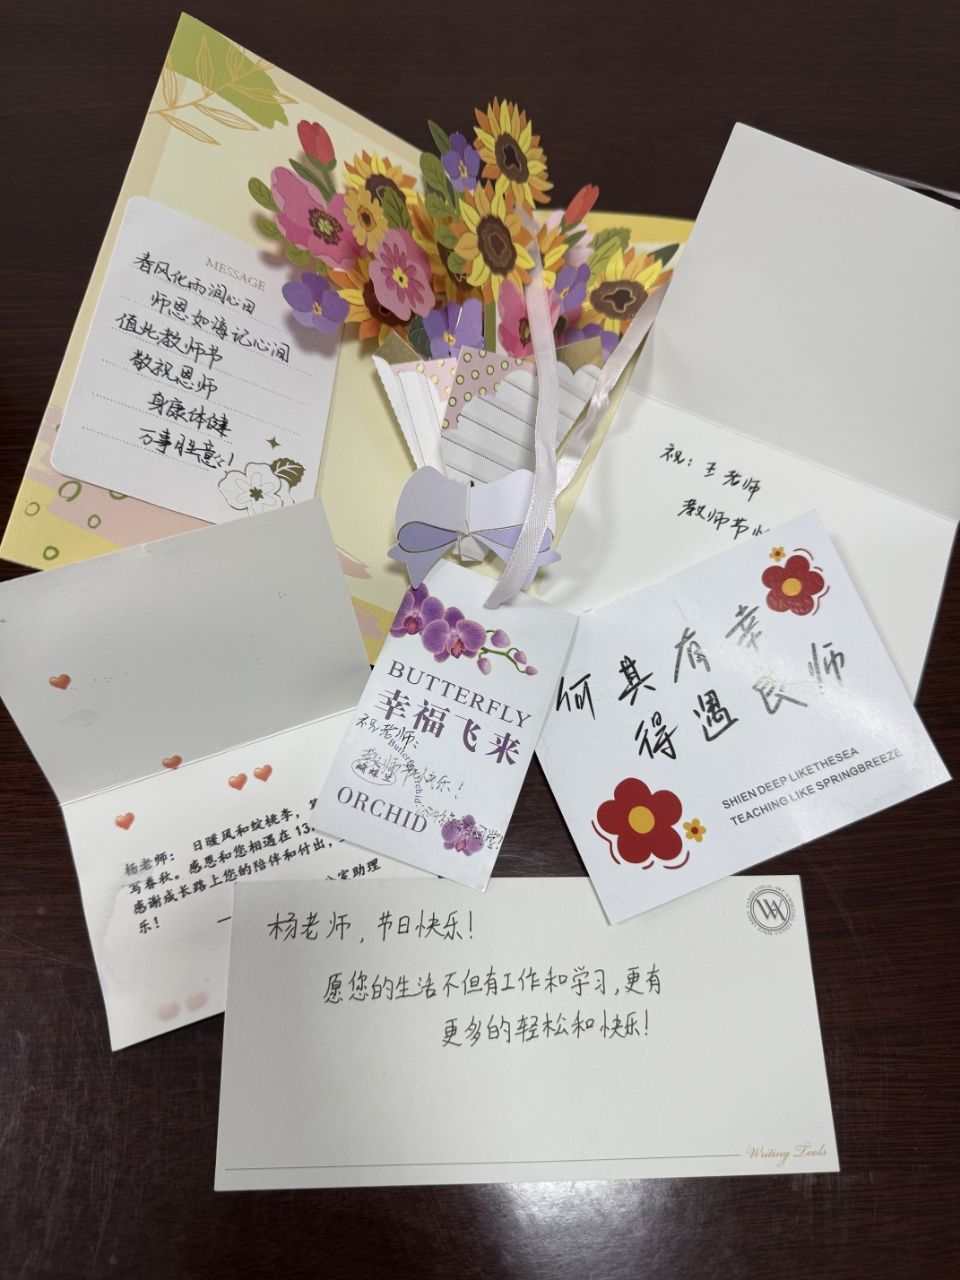 MESSAGE
春风化雨润心田
师恩如海记心间
值此教师节
敬祝恩师
身康体健
万事胜意!
祝：王老师
教师节
何其有幸
得遇良师
SHIEN DEEP LIKETHESEA
TEACHING LIKE SPRINGBREEZE
BUTTERFLY
幸福飞来
祝老师：
教师节快乐！
蝴蝶兰
ORCHID
杨老师： 日暖风和绽桃李，
写春秋。感恩和您相遇在13
感谢成长路上您的陪伴和付出，
乐！ 室助理
杨老师，节日快乐！
愿您的生活不但有工作和学习，更有
更多的轻松和快乐！
Writing Tools